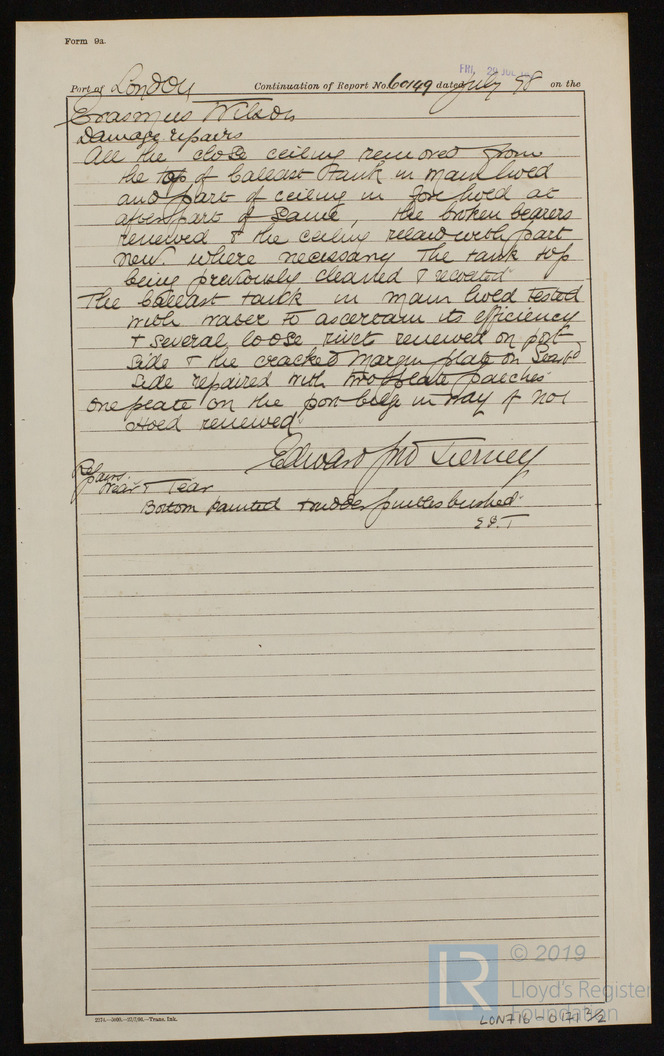 Form 9a.
FRI. 29 JUL
Port of London Continuation of Report No. 60149 dated July 98 on the
Erasmus Wilson
Damage repairs
All the close ceiling removed from
the top of ballast tank in main hold
and part of ceiling in fore hold at
after part of same, the broken bearers
renewed & the ceiling relaid with part
new where necessary the tank top
being previously cleaned & recoated
The ballast tank in main hold tested
with water to ascertain its efficiency
& several loose rivets renewed on port
side & the cracked margin plate on Starbd
side repaired with two plate patches
one plate on the port bilge in way of No 1
Hold renewed
Edward Tierney
Repairs
Wear & Tear
Bottom painted & rudder pintles bushed
2274.—5000.—Trans. Ink.
LR
© 2019
Lloyd's Register
Foundation
LON716-0171 3/2